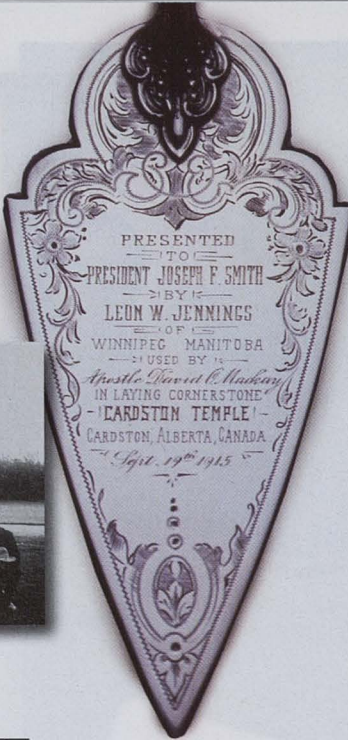 PRESENTED
TO
PRESIDENT JOSEPH F. SMITH
BY
LEON W. JENNINGS
OF
WINNIPEG MANITOBA
USED BY
Apostle David O. Mackay
IN LAYING CORNERSTONE
CARDSTON TEMPLE
CARDSTON, ALBERTA, CANADA
Sept. 19th 1915